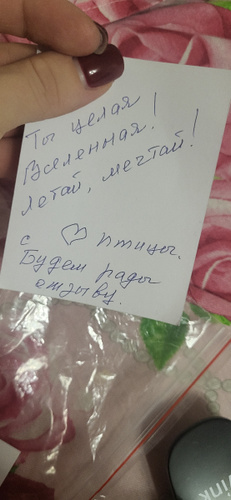 Ты целая
Вселенная!
Летай, мечтай!
с ♡ птицы.
Будем рады
отзыву.
ink